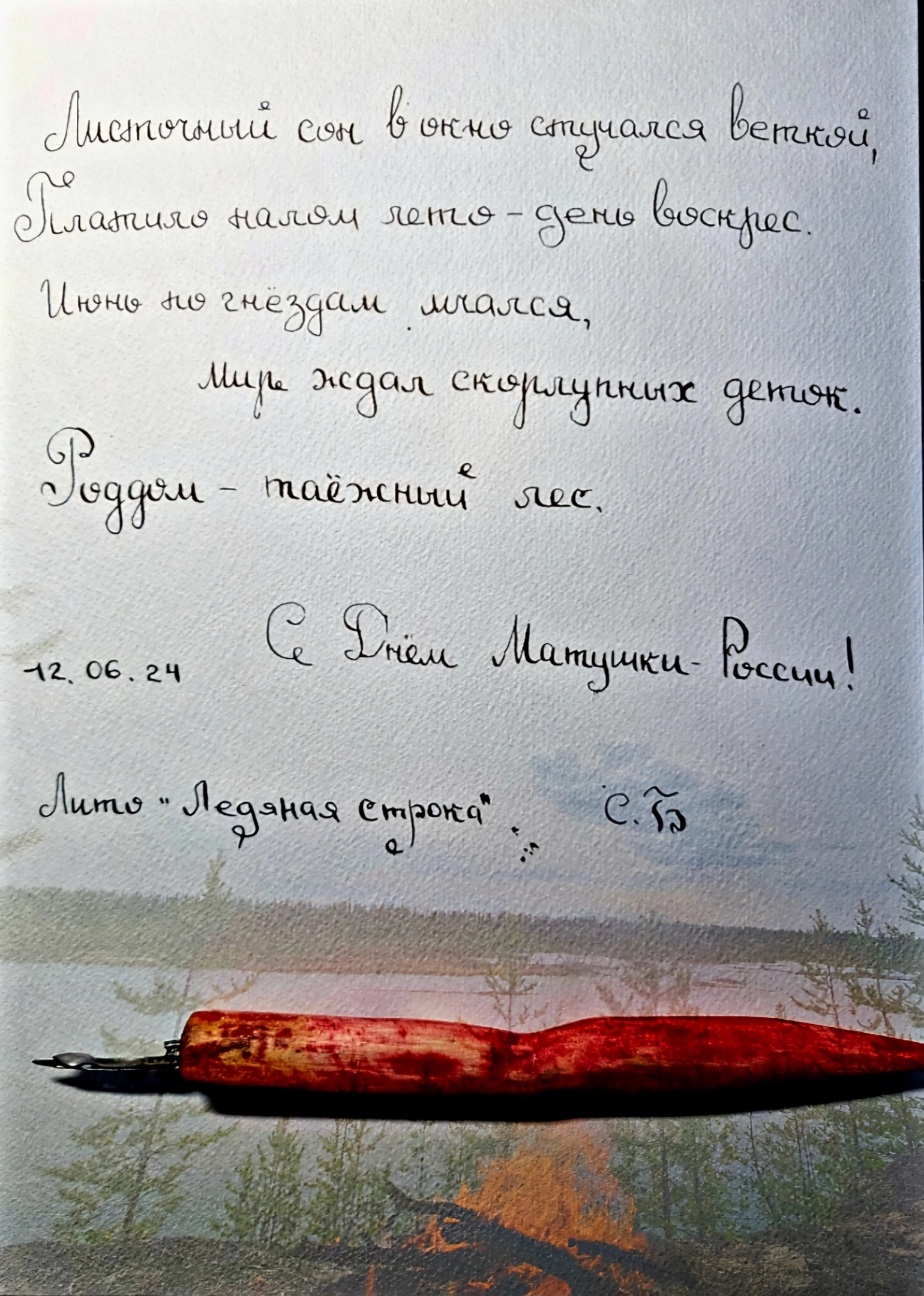 Листочный сон в окно стучался веткой,
Платило налом лето - день воскрес.
Июнь по гнёздам мчался,
мир ждал скорлупных деток.
Роддом - таёжный лес.
С Днём Матушки-России!
12.06.24
Лито "Ледяная строка" С.Б